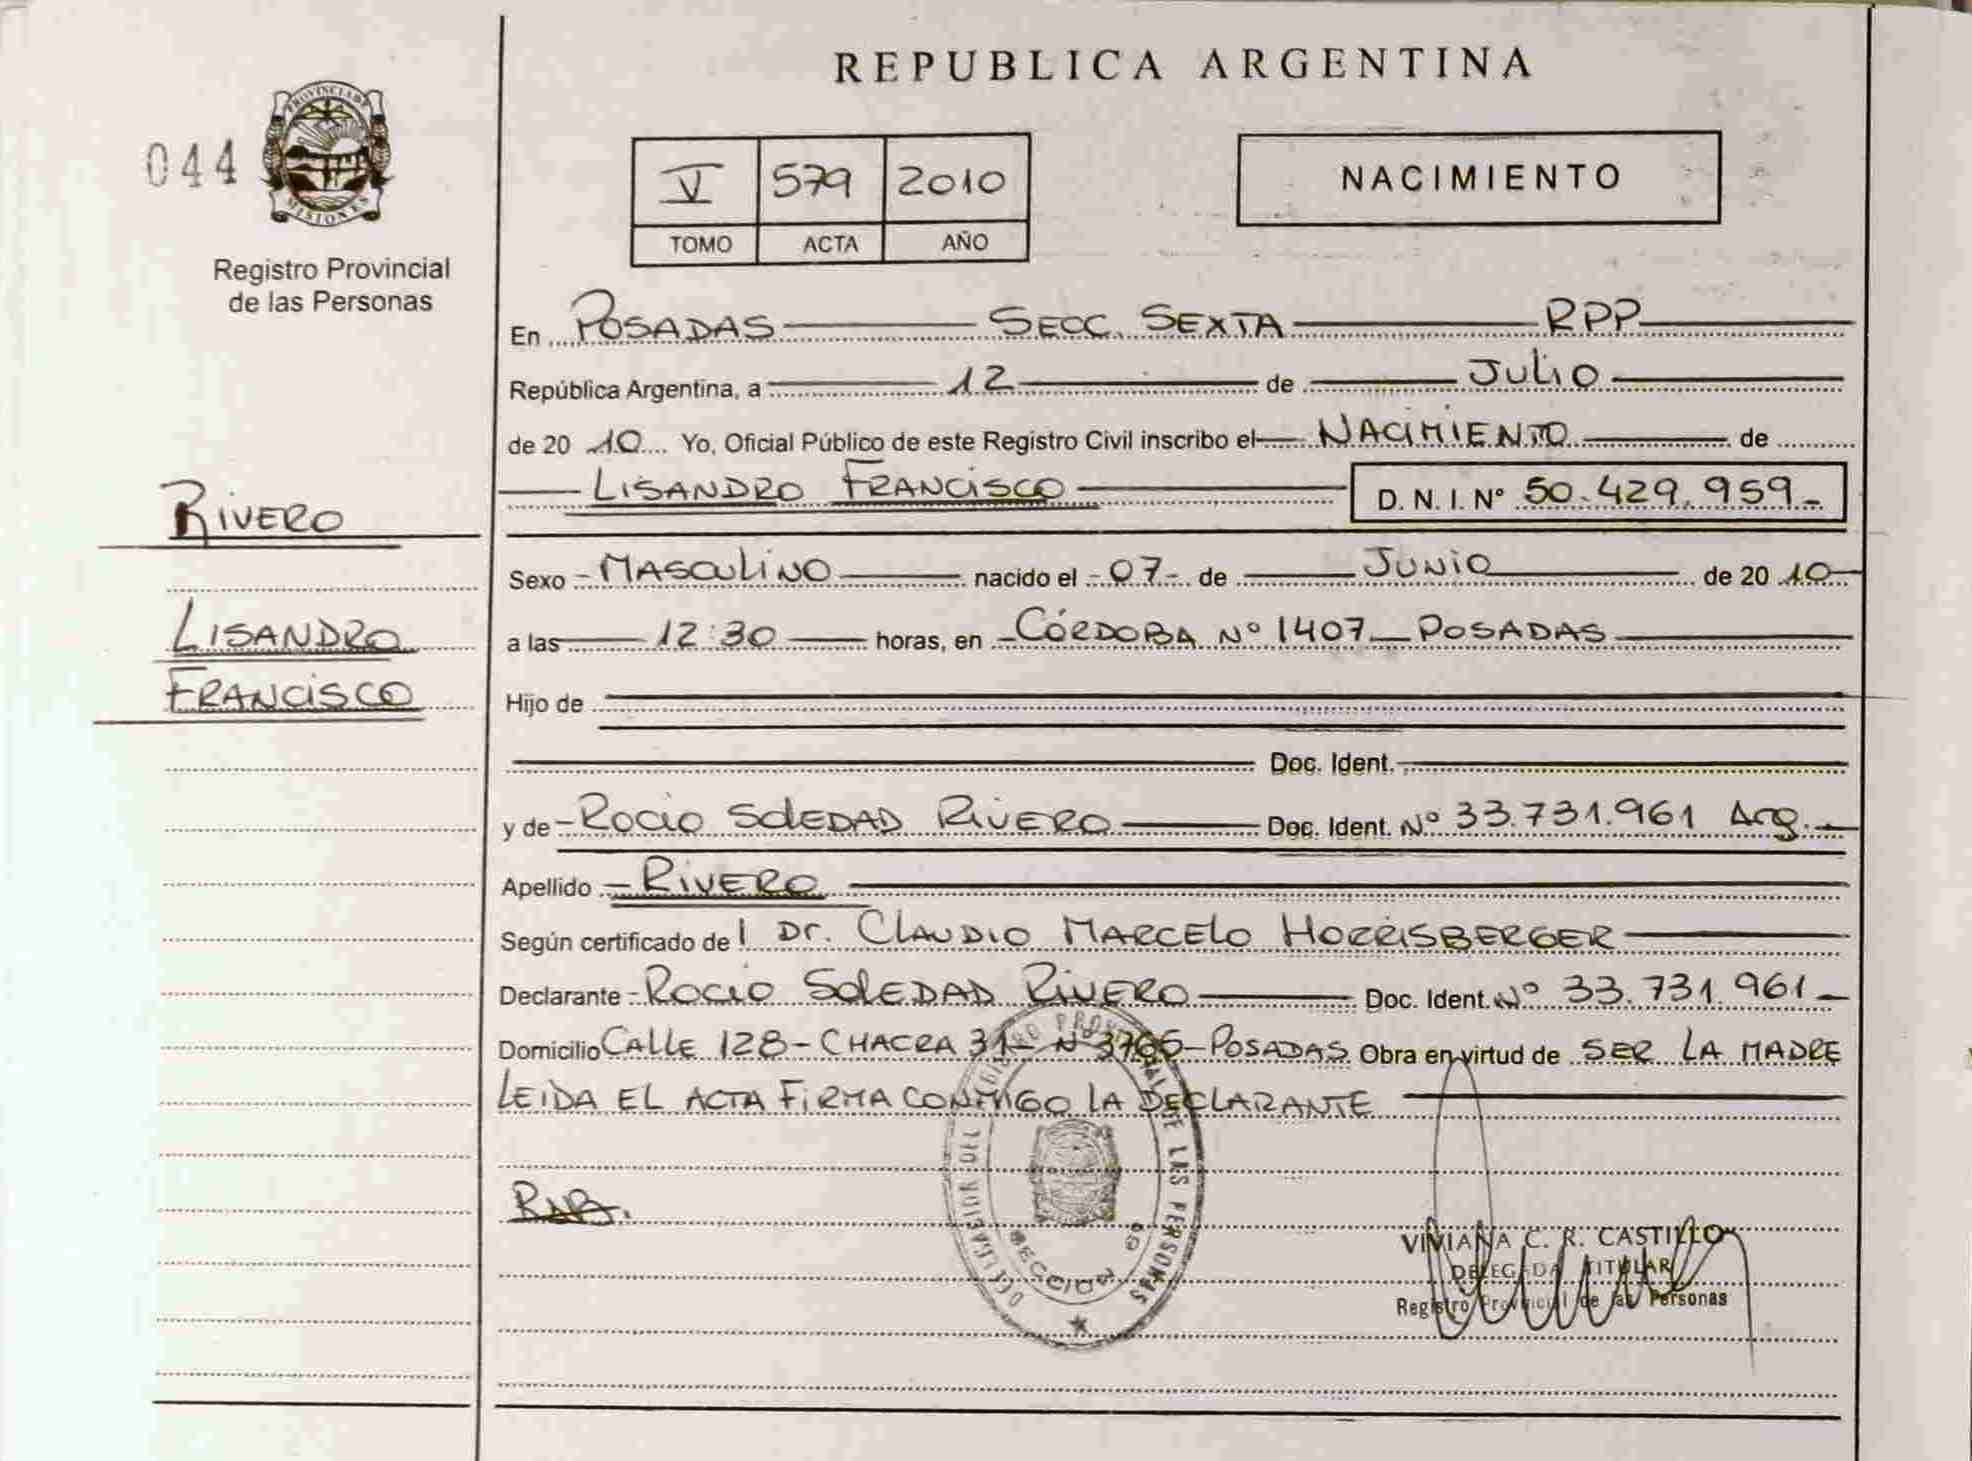 REPUBLICA ARGENTINA
044
PROVINCIA DE MISIONES
Registro Provincial
de las Personas
V 579 2010
TOMO ACTA AÑO
NACIMIENTO
En POSADAS SECC. SEXTA RPP
República Argentina, a 12 de Julio
de 20 10 Yo, Oficial Público de este Registro Civil inscribo el NACIMIENTO de
LISANDRO FRANCISCO D. N. I. N° 50.429.959
RIVERO
Sexo MASCULINO nacido el 07 de JUNIO de 20 10
LISANDRO
a las 12:30 horas, en CÓRDOBA Nº 1407 POSADAS
FRANCISCO
Hijo de
Doc. Ident.
y de ROCIO SOLEDAD RIVERO Doc. Ident. Nº 33.731.961 Arg.
Apellido RIVERO
Según certificado de l Dr. CLAUDIO MARCELO HORRISBERGER
Declarante ROCIO SOLEDAD RIVERO Doc. Ident. Nº 33.731.961
Domicilio CALLE 128 - CHACRA 31 - Nº - POSADAS Obra en virtud de SER LA MADRE
LEIDA EL ACTA FIRMA CONMIGO LA DECLARANTE
DELEGACION DEL REGISTRO PROVINCIAL DE LAS PERSONAS
SECCION 6º
VIVIANA C. R. CASTILLO
DELEGADA TITULAR
Registro Provincial de las Personas